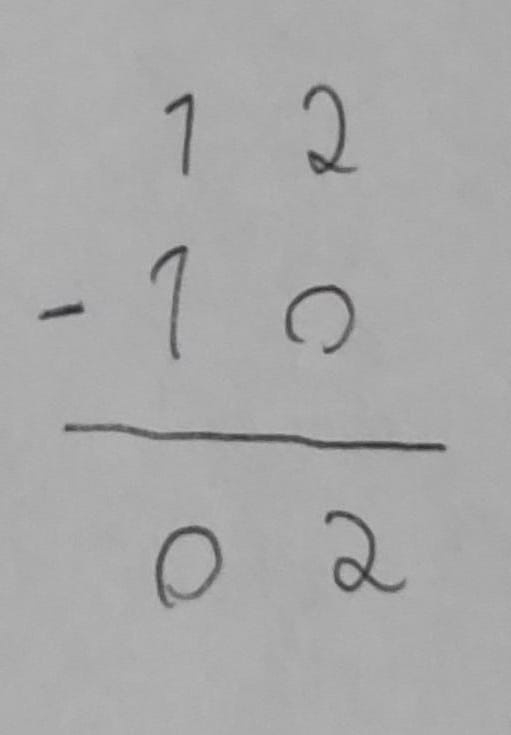 1 2
- 1 0
0 2